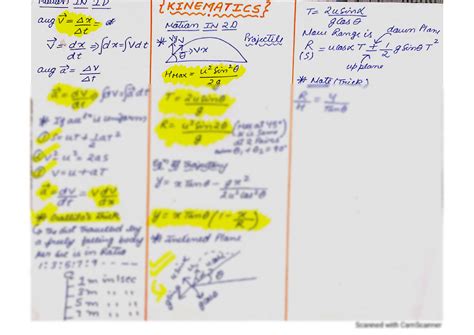 Motion IN 1D
avg v⃗ = Δx/Δt
v⃗ = dx/dt ⇒ ∫dx = ∫vdt
avg a⃗ = Δv/Δt
a⃗ = dv/dt ⇒ ∫dv = ∫a⃗dt
* If acc is uniform
① S = ut + ½at²
② v² = u² = 2aS
③ a⃗ = dv/dt = v dv/dx
* Gallileo's Trick
→ The dist travelled by
a freely falling body
per sec is in Ratio
1:3:5:7:9
1m in 1sec
3m
5m
{KINEMATICS}
Motion IN 2D
* Projectile
Hmax = u²sin²θ/2g
T = 2usinθ/g
R = u²sin2θ/g (max at 45°
x is same
at 2 Pairs
θ₁+θ₂=90°
Eqⁿ of Trajectory
y = x Tanθ - gx²/2u²cos²θ
y = x Tanθ(1 - x/R)
* Inclined Plane
T = 2usinα/gcosθ
Now Range is
down Plane
R(S) = ucosα T ± ½ g sinθ T²
up plane
* Note (Trick)
R/H = 4/Tanθ
Scanned with CamScanner